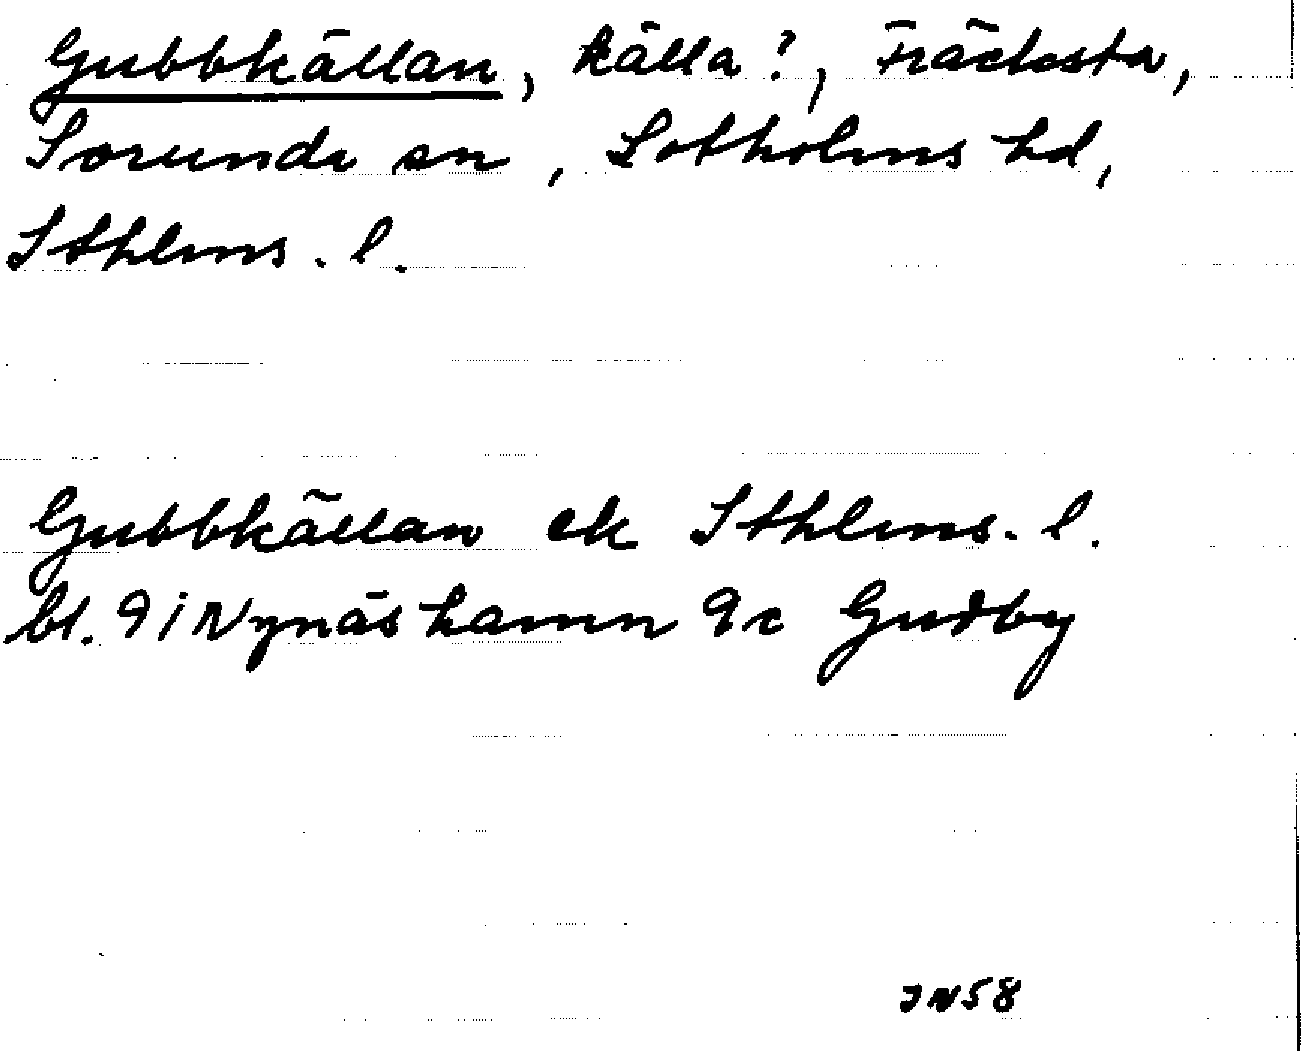 Gubbkällan, källa?, Fräcksta,
Sorunda sn, Sotholms hd,
Sthlms. l.
Gubbkällan ek Sthlms. l.
bl. 9i Nynäshamn 9c Gudby
JN58